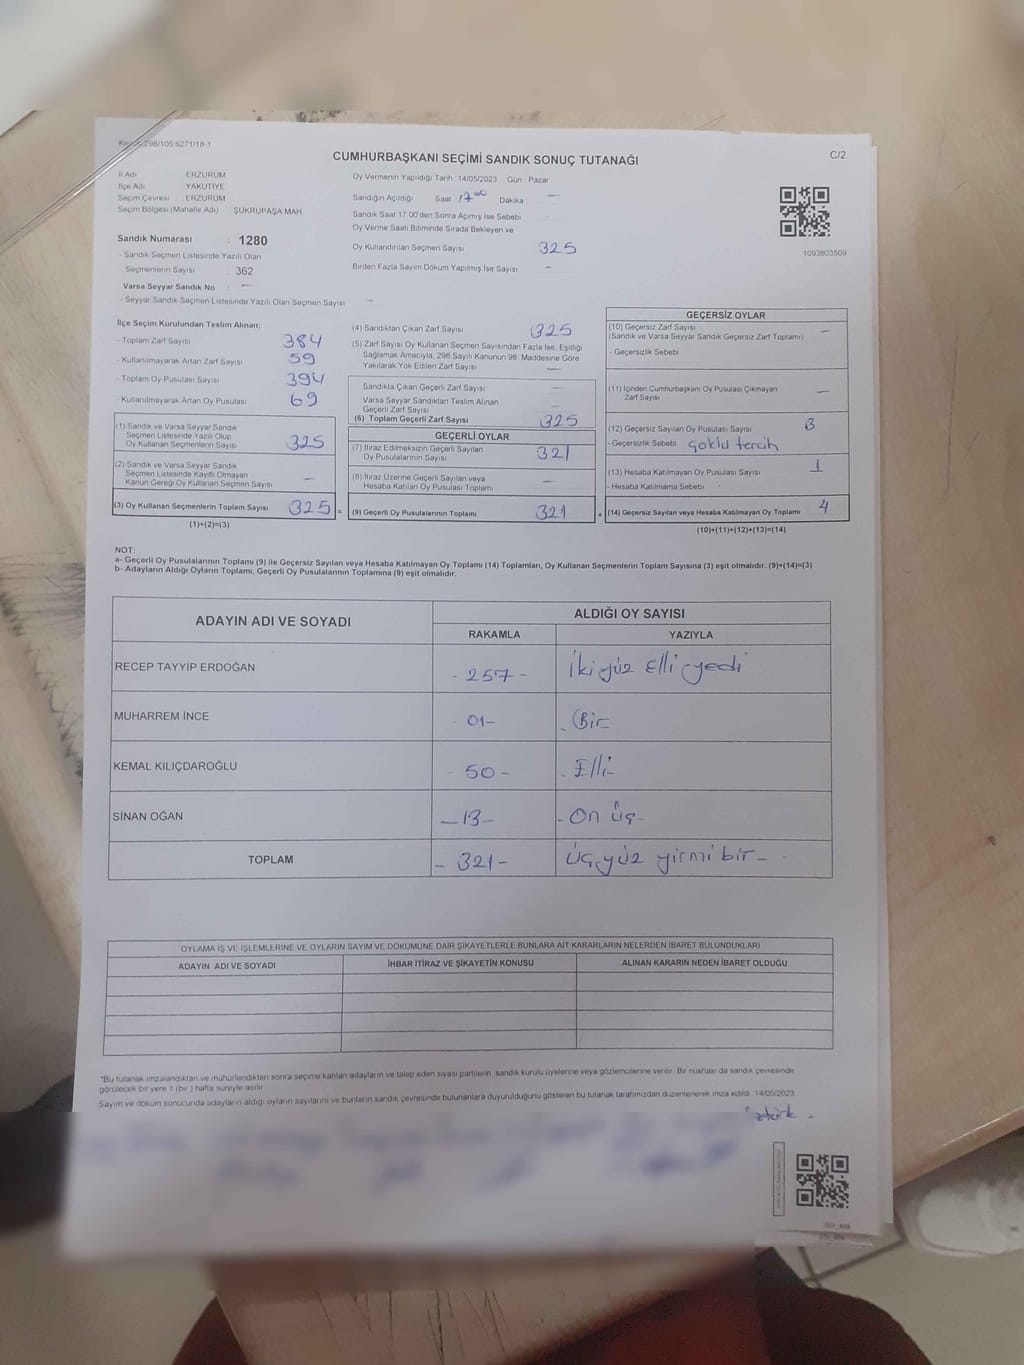 298/105.6271/18-1
CUMHURBAŞKANI SEÇİMİ SANDIK SONUÇ TUTANAĞI
C/2
İl Adı ERZURUM
İlçe Adı YAKUTİYE
Seçim Çevresi ERZURUM
Seçim Bölgesi (Mahalle Adı) ŞÜKRÜPAŞA MAH.
Sandık Numarası : 1280
- Sandık Seçmen Listesinde Yazılı Olan
Seçmenlerin Sayısı : 362
Varsa Seyyar Sandık No : —
- Seyyar Sandık Seçmen Listesinde Yazılı Olan Seçmen Sayısı —
Oy Vermenin Yapıldığı Tarih 14/05/2023 Gün Pazar
Sandığın Açıldığı Saat 17⁰⁰ Dakika —
Sandık Saat 17.00'den Sonra Açılmış İse Sebebi
Oy Verme Saati Bitiminde Sırada Bekleyen ve
Oy Kullandırılan Seçmen Sayısı 325
Birden Fazla Sayım Döküm Yapılmış İse Sayısı —
1093803509
İlçe Seçim Kurulundan Teslim Alınan;
- Toplam Zarf Sayısı 384
- Kullanılmayarak Artan Zarf Sayısı 59
- Toplam Oy Pusulası Sayısı 394
- Kullanılmayarak Artan Oy Pusulası 69
(1) Sandık ve Varsa Seyyar Sandık
Seçmen Listesinde Yazılı Olup
Oy Kullanan Seçmenlerin Sayısı 325
(2) Sandık ve Varsa Seyyar Sandık
Seçmen Listesinde Kayıtlı Olmayan
Kanun Gereği Oy Kullanan Seçmen Sayısı —
(3) Oy Kullanan Seçmenlerin Toplam Sayısı 325 =
(1)+(2)=(3)
(4) Sandıktan Çıkan Zarf Sayısı 325
(5) Zarf Sayısı Oy Kullanan Seçmen Sayısından Fazla İse, Eşitliği
Sağlamak Amacıyla, 298 Sayılı Kanunun 98. Maddesine Göre
Yakılarak Yok Edilen Zarf Sayısı —
Sandıkta Çıkan Geçerli Zarf Sayısı —
Varsa Seyyar Sandıktan Teslim Alınan
Geçerli Zarf Sayısı —
(6) Toplam Geçerli Zarf Sayısı 325
GEÇERLİ OYLAR
(7) İtiraz Edilmeksizin Geçerli Sayılan
Oy Pusulalarının Sayısı 321
(8) İtiraz Üzerine Geçerli Sayılan veya
Hesaba Katılan Oy Pusulaları Toplamı —
(9) Geçerli Oy Pusulalarının Toplamı 321 +
GEÇERSİZ OYLAR
(10) Geçersiz Zarf Sayısı —
(Sandık ve Varsa Seyyar Sandık Geçersiz Zarf Toplamı)
- Geçersizlik Sebebi
(11) İçinden Cumhurbaşkanı Oy Pusulası Çıkmayan
Zarf Sayısı —
(12) Geçersiz Sayılan Oy Pusulası Sayısı 3
- Geçersizlik Sebebi çoklu tercih
(13) Hesaba Katılmayan Oy Pusulası Sayısı 1
- Hesaba Katılmama Sebebi
(14) Geçersiz Sayılan veya Hesaba Katılmayan Oy Toplamı 4
(10)+(11)+(12)+(13)=(14)
NOT:
a- Geçerli Oy Pusulalarının Toplamı (9) ile Geçersiz Sayılan veya Hesaba Katılmayan Oy Toplamı (14) Toplamları, Oy Kullanan Seçmenlerin Toplam Sayısına (3) eşit olmalıdır. (9)+(14)=(3)
b- Adayların Aldığı Oyların Toplamı, Geçerli Oy Pusulalarının Toplamına (9) eşit olmalıdır.
ADAYIN ADI VE SOYADI
ALDIĞI OY SAYISI
RAKAMLA YAZIYLA
RECEP TAYYİP ERDOĞAN - 257 - İkiyüz Elli yedi
MUHARREM İNCE 01- - Bir
KEMAL KILIÇDAROĞLU - 50 - - Elli
SİNAN OĞAN - 13 - - On üç -
TOPLAM - 321 - Üçyüz yirmi bir -
OYLAMA İŞ VE İŞLEMLERİNE VE OYLARIN SAYIM VE DÖKÜMÜNE DAİR ŞİKAYETLERLE BUNLARA AİT KARARLARIN NELERDEN İBARET BULUNDUKLARI
ADAYIN ADI VE SOYADI İHBAR İTİRAZ VE ŞİKAYETİN KONUSU ALINAN KARARIN NEDEN İBARET OLDUĞU
*Bu tutanak imzalandıktan ve mühürlendikten sonra seçime katılan adayların ve talep eden siyasi partilerin sandık kurulu üyelerine veya gözlemcilerine verilir. Bir nüshası da sandık çevresinde
görülecek bir yere 1 (bir ) hafta süreyle asılır.
Sayım ve döküm sonucunda adayların aldığı oyların sayılarını ve bunların sandık çevresinde bulunanlara duyurulduğunu gösteren bu tutanak tarafımızdan düzenlenerek imza edildi. 14/05/2023